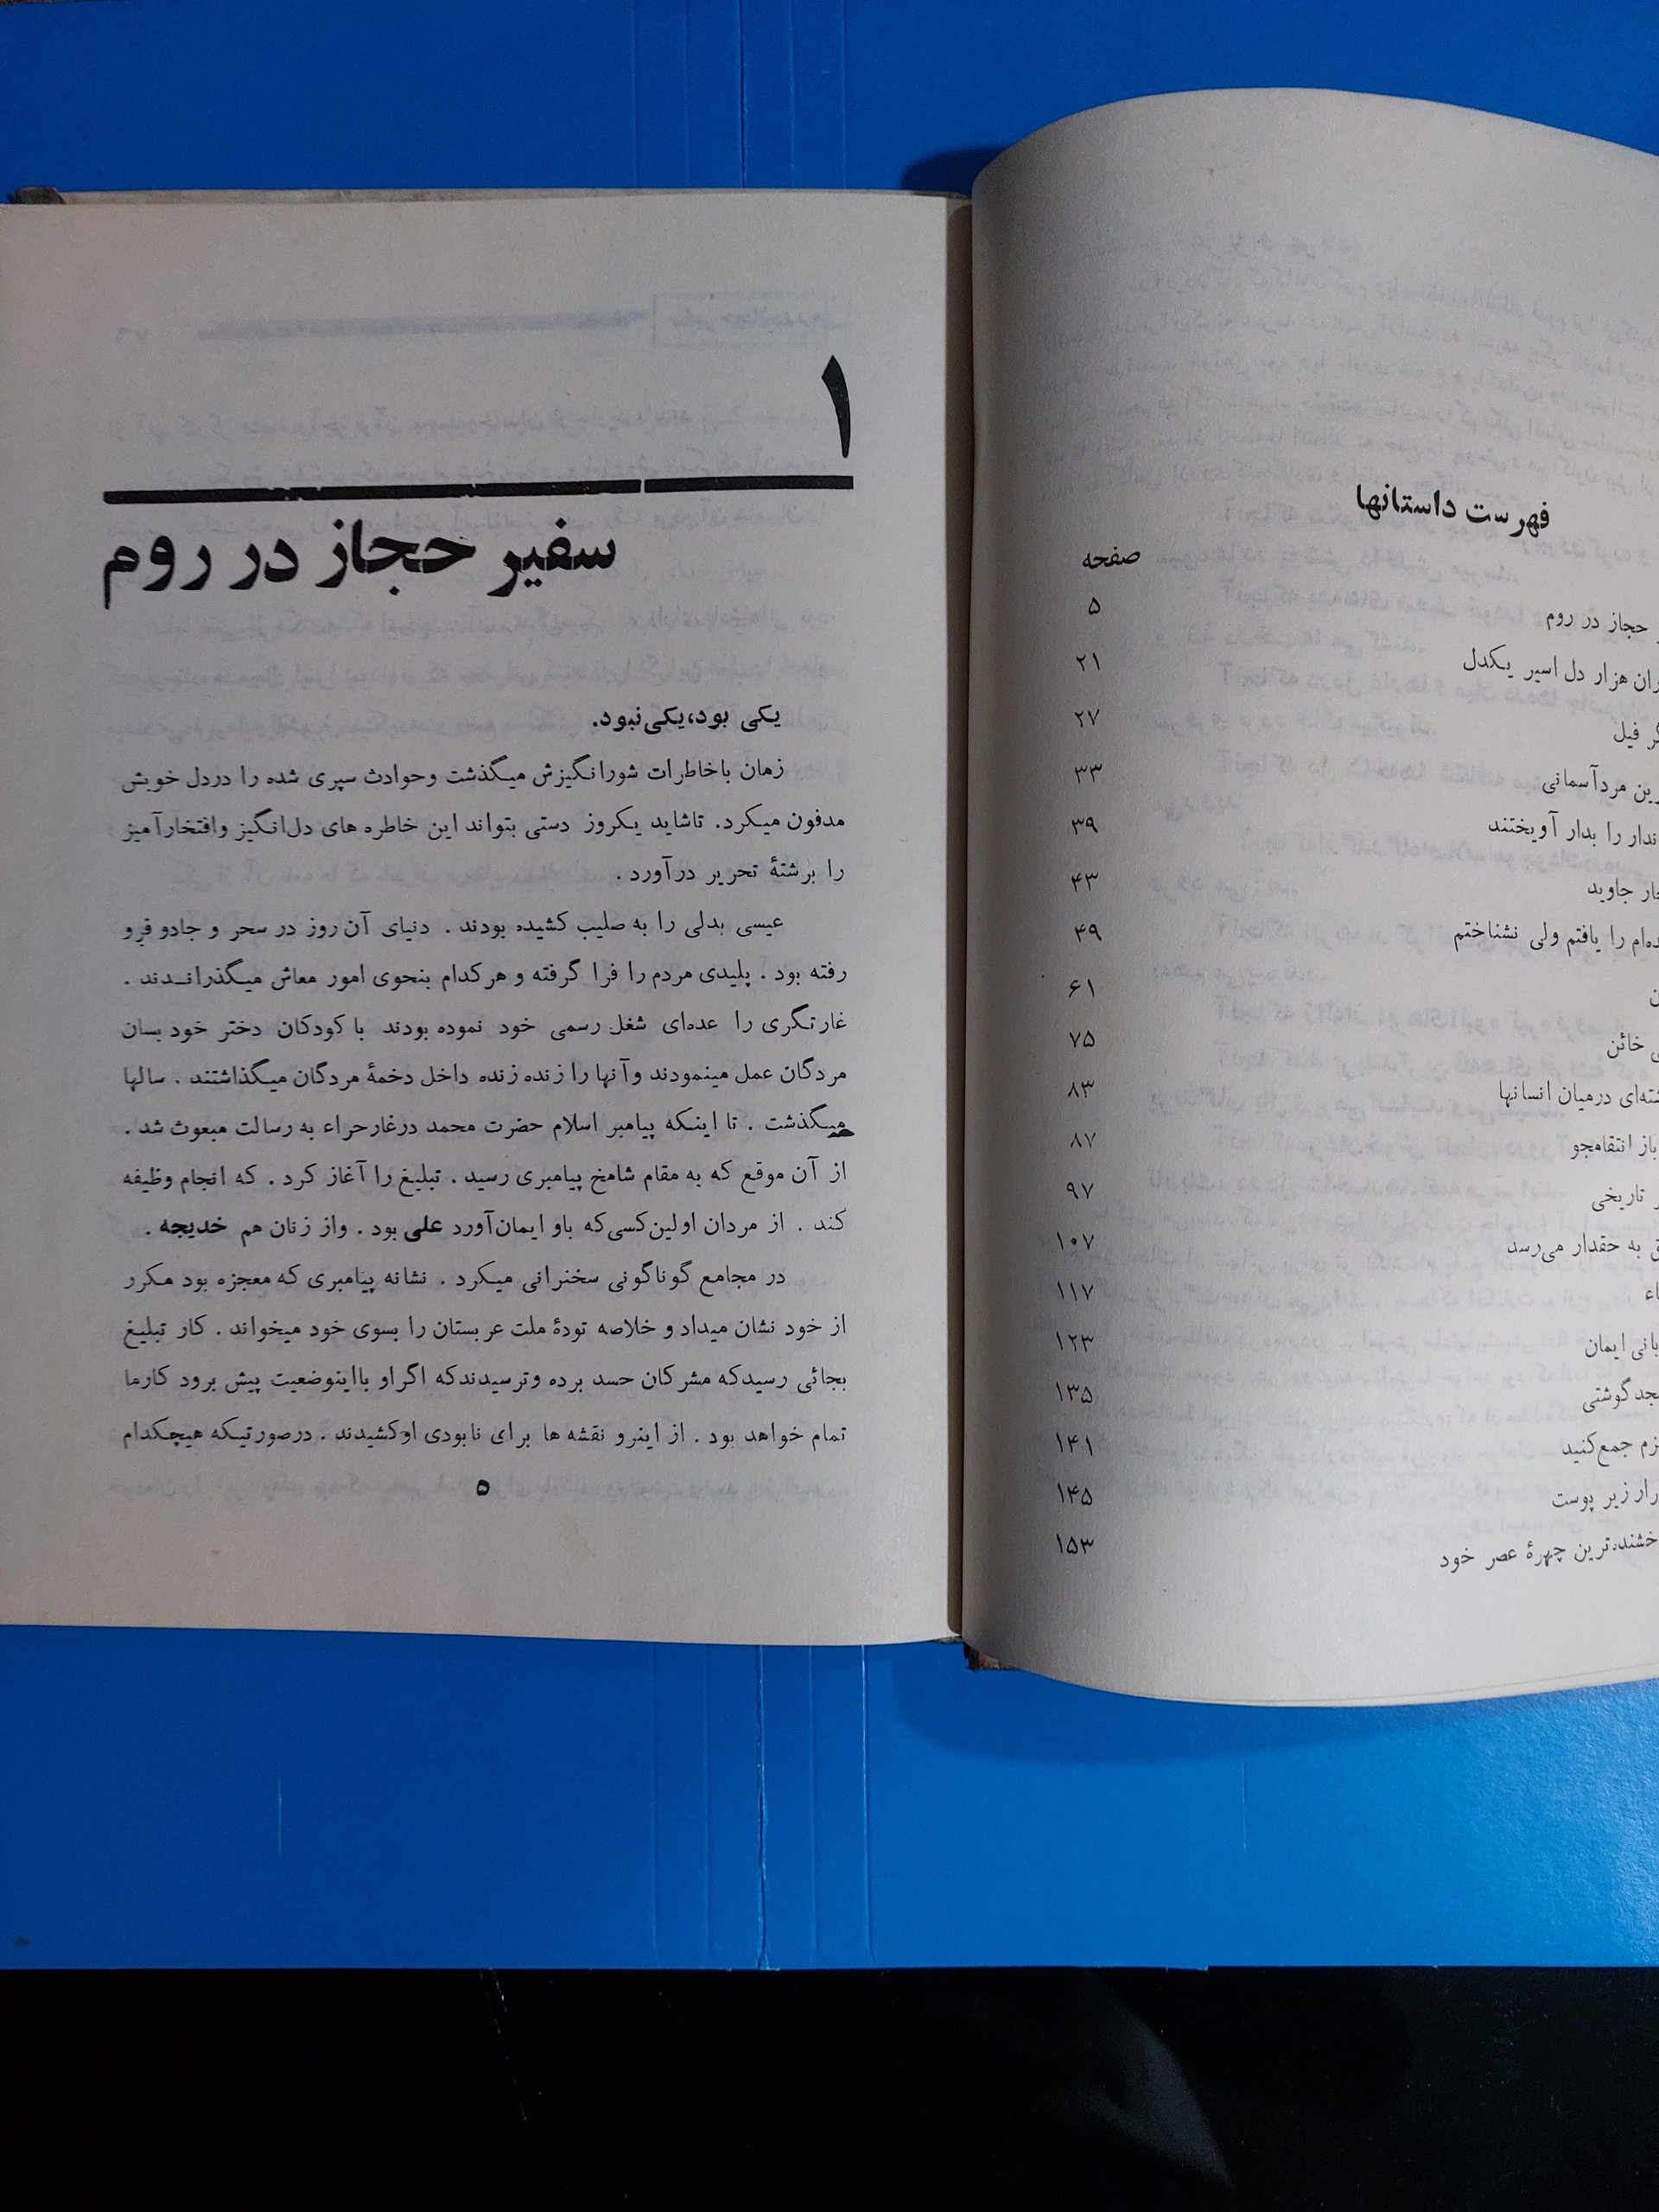 فهرست داستانها
صفحه
حجاز در روم ۵
هزار دل اسیر یکدل ۲۱
فیل ۲۷
مردآسمانی ۳۳
را بدار آویختند ۳۹
جاوید ۴۳
را یافتم ولی نشناختم ۴۹
۶۱
خائن ۷۵
درمیان انسانها ۸۳
باز انتقامجو ۸۷
تاریخی ۹۷
به حقدار می‌رسد ۱۰۷
۱۱۷
ایمان ۱۲۳
گوشتی ۱۳۵
جمع‌کنید ۱۴۱
زیر پوست ۱۴۵
چهرهٔ عصر خود ۱۵۳
۱
سفیر حجاز در روم
یکی بود،یکی‌نبود.
زمان باخاطرات شورانگیزش میگذشت وحوادث سپری شده را دردل خویش
مدفون میکرد. تاشاید یکروز دستی بتواند این خاطره های دل‌انگیز وافتخارآمیز
را برشتهٔ تحریر درآورد .
عیسی بدلی را به صلیب کشیده بودند . دنیای آن روز در سحر و جادو فرو
رفته بود . پلیدی مردم را فرا گرفته و هرکدام بنحوی امور معاش میگذرانـدند .
غارتگری را عده‌ای شغل رسمی خود نموده بودند با کودکان دختر خود بسان
مردگان عمل مینمودند وآنها را زنده زنده داخل دخمهٔ مردگان میگذاشتند . سالها
میگذشت . تا اینکه پیامبر اسلام حضرت محمد درغارحراء به رسالت مبعوث شد .
از آن موقع که به مقام شامخ پیامبری رسید . تبلیغ را آغاز کرد . که انجام وظیفه
کند . از مردان اولین‌کسی‌که باو ایمان‌آورد علی بود . واز زنان هم خدیجه .
در مجامع گوناگونی سخنرانی میکرد . نشانه پیامبری که معجزه بود مکرر
از خود نشان میداد و خلاصه تودهٔ ملت عربستان را بسوی خود میخواند . کار تبلیغ
بجائی رسیدکه مشرکان حسد برده وترسیدندکه اگراو بااینوضعیت پیش برود کارما
تمام خواهد بود . از اینرو نقشه ها برای نابودی اوکشیدند . درصورتیکه هیچکدام
۵